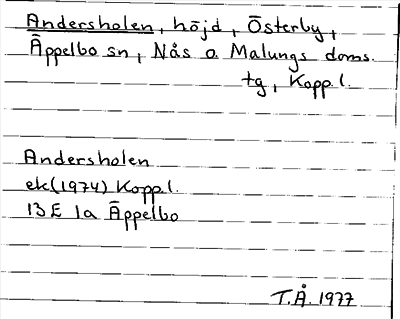 Andersholen, höjd, Österby,
Äppelbo sn, Nås o Malungs doms.
tg, Kopp.l.
Andersholen
ek(1974) Kopp.l.
13E 1a Äppelbo
T.Å. 1977